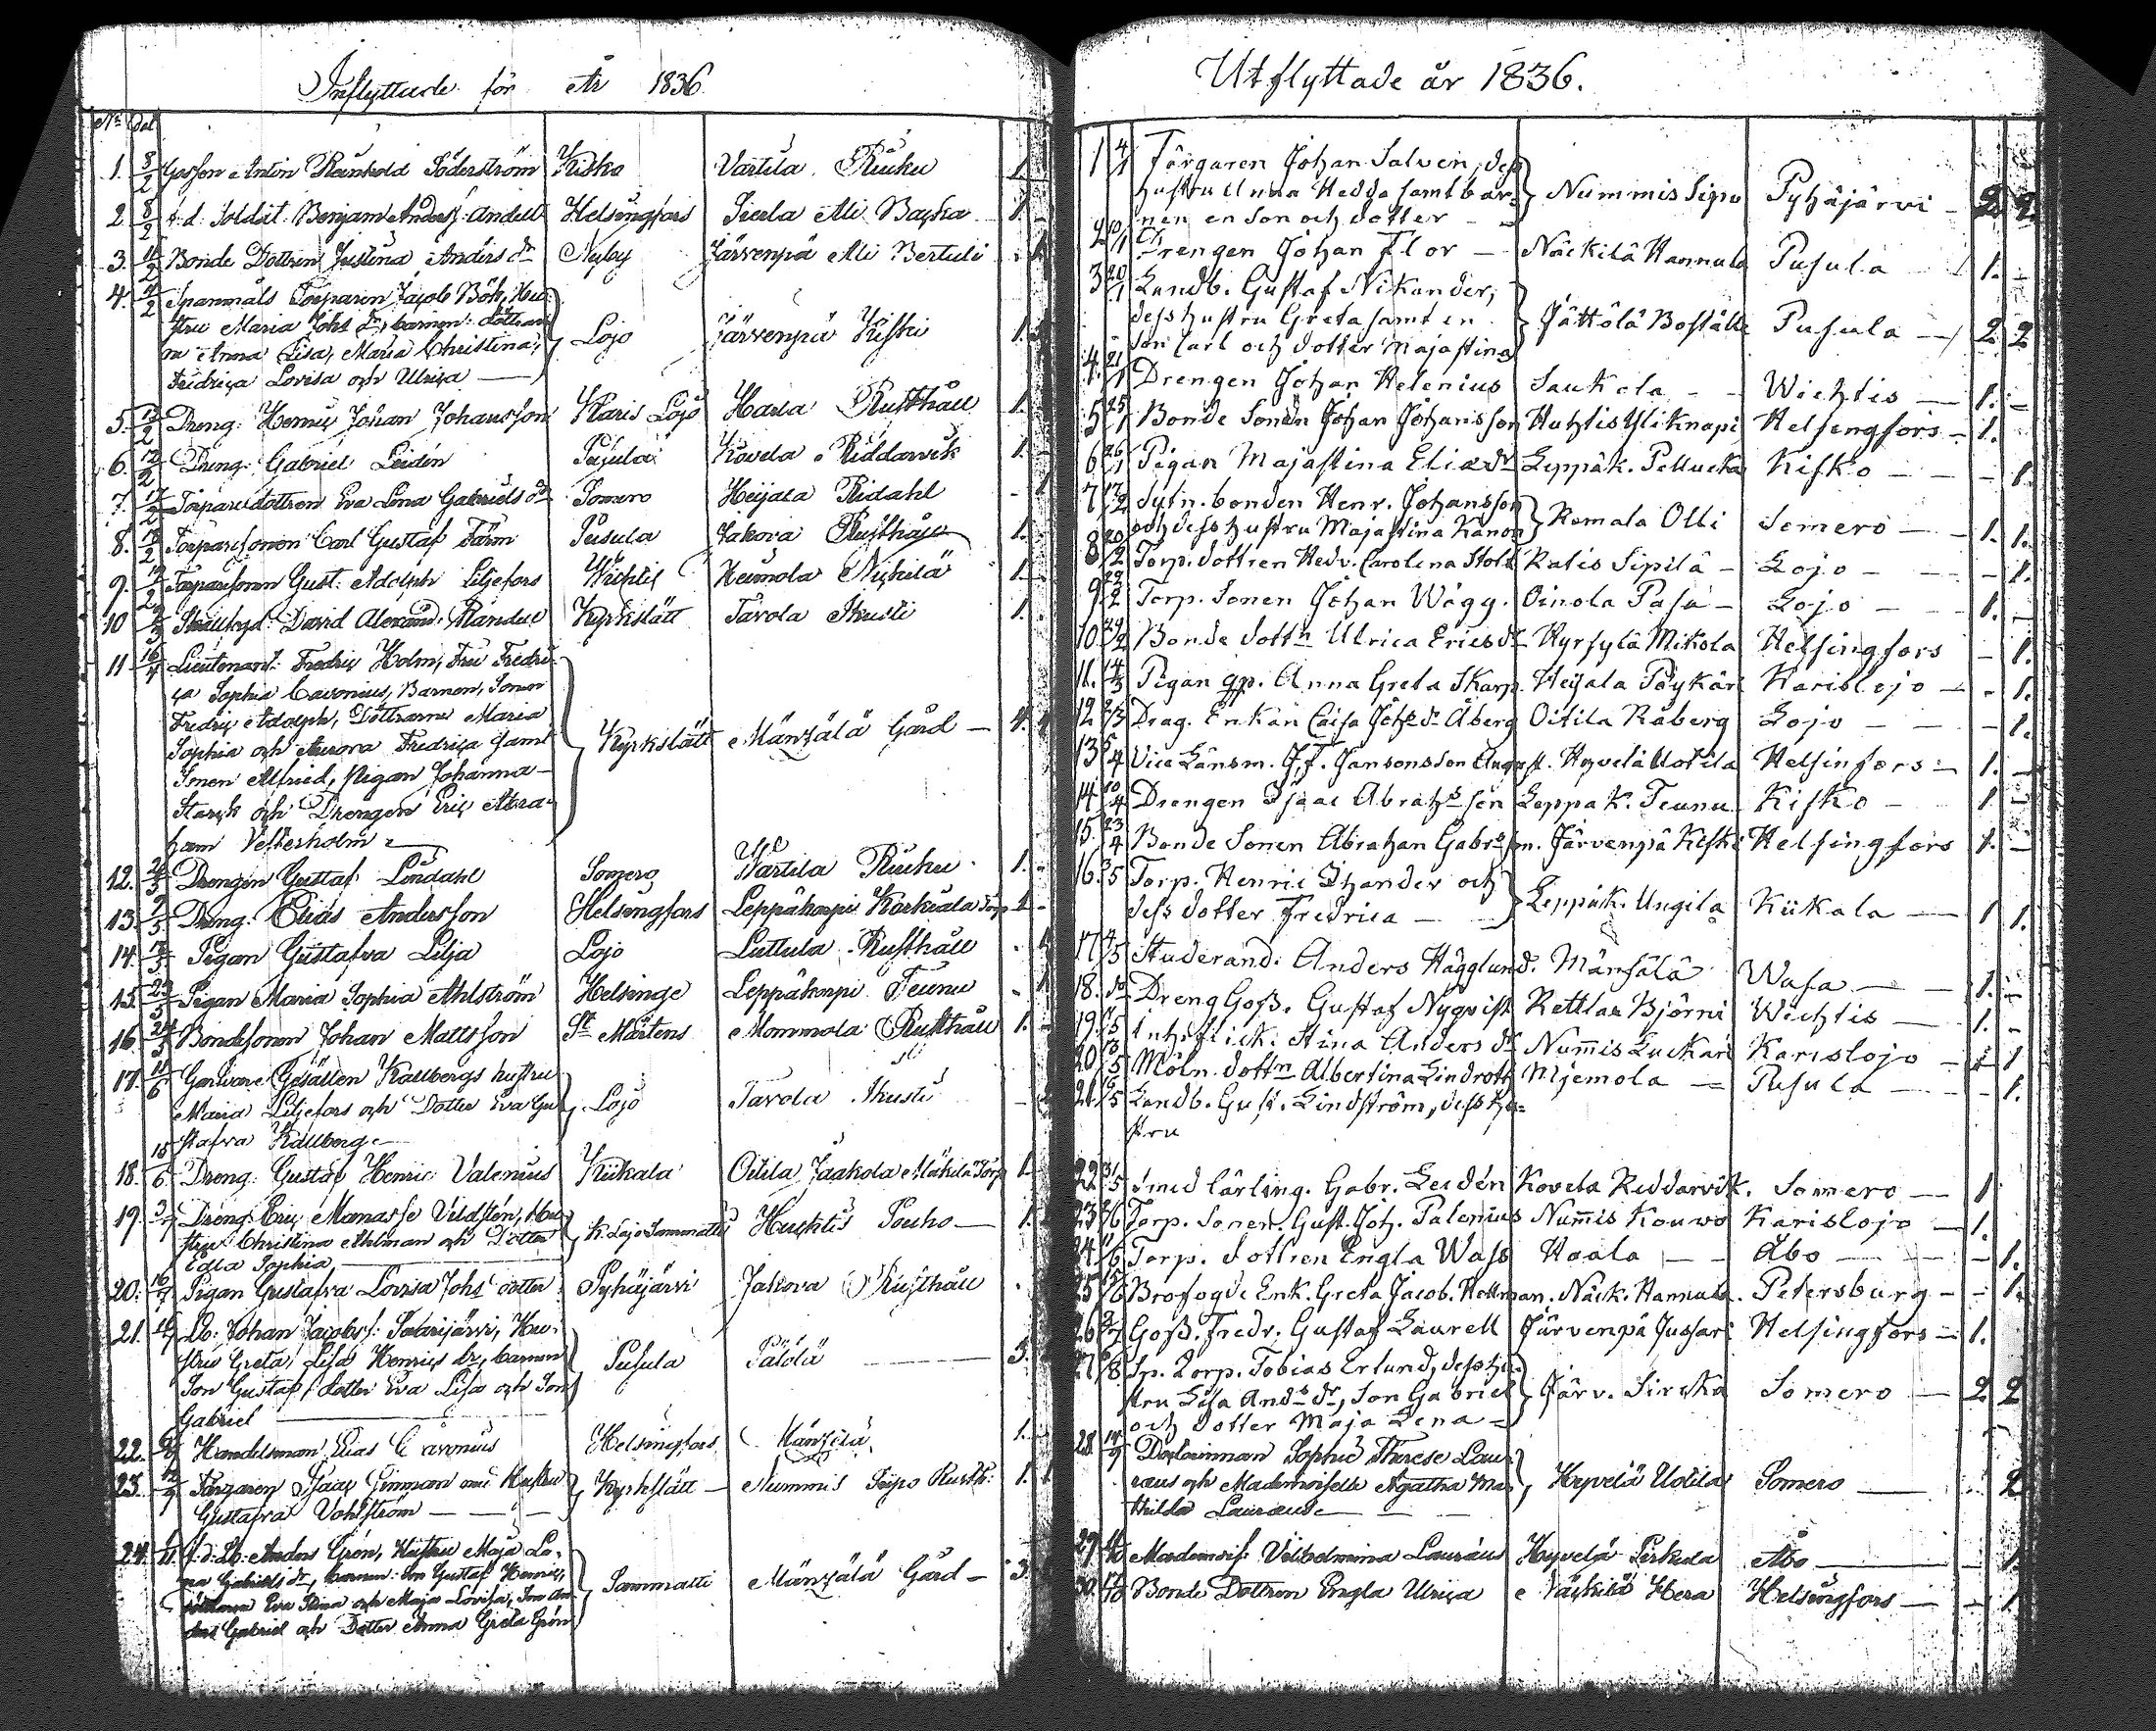 Inflyttade för År 1836
No Dat
1. 8/2 Gossen Anton Reinhold Söderström Kisko Vartila Ruku 1.
2 8/2 f.d. Soldat. Benjam Anders: Andell Helsingfors Sierla Ali 1.
3. 11/2 Bonde Dottren Justina Anders dr Nyby Järvenpä Ali Bertuli 1
4. 11/2 Spanmåls Torparen Jacob Böh, Hu-
stru Maria Johs dr, barnen: döttrar-
na Anna Lisa, Maria Christina, Lojo Järvenpä Kiski 1.
Fredrica Lovisa och Ulrica
5. 12/2 Dreng: Henric Johan Johansson Karis Lojo Haarla Rusthåll 1.
6. 12/2 Dreng: Gabriel Leidén Pusula Kovela Riddarvik 1.
7. 17/2 Torparedottren Eva Lena Gabriels dr Somero Heijala Ridahl - 1
8. 18/2 Torparesonen Carl Gustaf Färm Pusula Jakova Rusthåll 1.
9. 19/2 Torparesonen Gust. Adolph Liljefors Wichtis Heimola Nickilä 1.
10 David Alexand: Randell Kyrkslätt Tavola Skusti 1.
11 16/4 Lieutenant Fredric Holm, Fru Fredri-
ca Sophia Cavonius, Barnen, Sonen
Fredric Adolph, Döttrarne Maria
Sophia och Aurora Fredrica samt Kyrkslätt Mänsälä Gård 4. 4
Sonen Alfried, Pigan Johanna
Starck och Drengen Eric Abra-
ham Vesterholm
12. Drengen Gustaf Lindahl Somero Wartila Ruku 1.
13. 9/5 Dreng: Elias Andersson Helsingfors Leppäkorpi Karkiala Torp 1
14. 13/5 Pigan Gustafva Lilja Lojo Luttula Rusthåll - 1
15. 23/5 Pigan Maria Sophia Ahlström Helsinge Leppäkorpi Teunu - 1
16. 24/5 Bondesonen Johan Mattsson St Mårtens Mommola Rusthåll 1.
17. 11/6 Garfvare Gesällen Kallbergs hustru
Maria Liljefors och Dotter Eva Gu- Lojo Tavola Skusti
stafva Kallberg
18. 15/6 Dreng: Gustaf Henric Valenius Kiikala Oitila Jaakola Mäkilä Torp 1.
19. 3/7 Dreng: Eric Manasse Vildstén, Hu-
stru Christina Ahlman och Dotter K. Lojo Sammatti Huhtis Pouho 1.
Edla Sophia,
20. 16/7 Pigan Gustafva Lovisa Johs dotter Pyhäjärvi Jakova Rusthåll
21. 16/7 Lb: Johan Jacobs: Salarijärvi, Hu-
stru Greta Lisa Henrics dr, barnen Pusula Pätölä 3.
Son Gustaf, dotter Eva Lisa och Son
Gabriel
22. Handelsman Elias Cavonius Helsingfors Mänsälä 1.
23. Färgaren Isaac Ginman och Hustru Kyrkslätt Nummis Sipo Rusth: 1. 1
Gustafva Vohlström
24. f.d. Lb: Anders Grön, Hustru Maja Le-
na Gabriels dr, barnen: Son Gustaf Henric,
döttrarna Eva Stina och Maja Lovisa, Son An- Sammatti Mänsälä Gård 3.
ders Gabriel och Dotter Anna Greta Grön
Utflyttade år 1836.
1 4/1 Färgaren Johan Salven, dess
hustru Anna Hedda samt bar- Nummis Sipo Pyhäjärvi 2 2
nen en son och dotter
2 10/1 Drengen Johan Flor Näckilä Hannula Pusula 1.
3 20/1 Landb. Gustaf Nikander,
dess hustru Greta samt en Jättölä Boställe Pusula 2. 2
son Carl och dotter Majastina
4. 21/1 Drengen Johan Helenius Saukola Wichtis 1.
5 25/1 Bonde Sonen Johan Johansson Huhtis Yliknapi Helsengfors 1.
6 26/1 Pigan Majastina Elias dr Leppäk. Pellucka Kisko - 1.
7 12/2 Sytn. bonden Henr. Johansson
och dess hustru Majastina Kanon Remala Olli Somero 1. 1.
8 20/2 Torp. dottren Hedv. Carolina Stolt Ratis Sipilä Lojo - 1.
9 22/2 Torp. Sonen Johan Wågg. Oinola Pasa Lojo 1.
10 29/2 Bonde dottn Ulrica Erics dr Hyrsylä Mikola Helsingfors - 1.
11. 14/3 Pigan gp. Anna Greta Skarp. Heijala Pöykäri Karislojo - 1.
12 Drag. Enkan Caisa Johs dr Åberg Oitila Råberg Lojo - 1.
13 5/4 Vice Länsm. J.F. Jansons Son August. Hyvelä Uotila Helsinfors 1.
14 10/4 Drengen Isaac Abrahs son Leppäk. Teunu Kisko 1
15. 23/4 Bonde Sonen Abraham Gabr. son. Järvenpä Kiski Helsingfors 1.
16. 3/5 Torp. Henric Ihander och
dess dotter Fredrica Leppäk. Ungila Kiikala 1 1.
17 4/5 Studerand. Anders Hägglund. Mänsälä Wasa 1.
18. do Dreng Goss. Gustaf Nyqvist Rettlax Björni Wichtis 1.
19. Inhs flick. Stina Anders dr Nummis Luckari Karislojo 1
20 13/5 Möln. dottn Albertina Lindroth Mjemola Pusula 1.
21. 16/5 Landb. Gust. Lindström, dess hu-
stru
22 31/5 Smed lärling. Gabr. Leidén Kovela Reddarvik. Somero 1
23 Torp. Sonen. Gust. Joh. Palenius Nummis Kouvo Karislojo 1.
24 11/6 Torp. dottren Engla Wass Haala Åbo - 1.
25 Brofogde Enk. Greta Jacob. Hellman. Näck. Hannula. Petersburg - 1.
26 2/7 Goss. Fredr. Gustaf Laurell Järvenpä Jussari Helsingfors 1.
27 Sp. Torp. Tobias Erlund, dess hu-
stru Lisa Ands dr, son Gabriel Järv. Sirska Somero 2 2
och dotter Maja Lena
28 14/9 Docto Sophie Therese Lau-
raus och Mademoiselle Agatha Ma- Hyvelä Uotila Somero 2
thilda Lauraus
29. Mademois: Vilhelmina Lauraus Hyvelä Perkola Åbo 1
30. Bonde Dottren Engla Ulrica Näckilä Hera Helsingfors 1